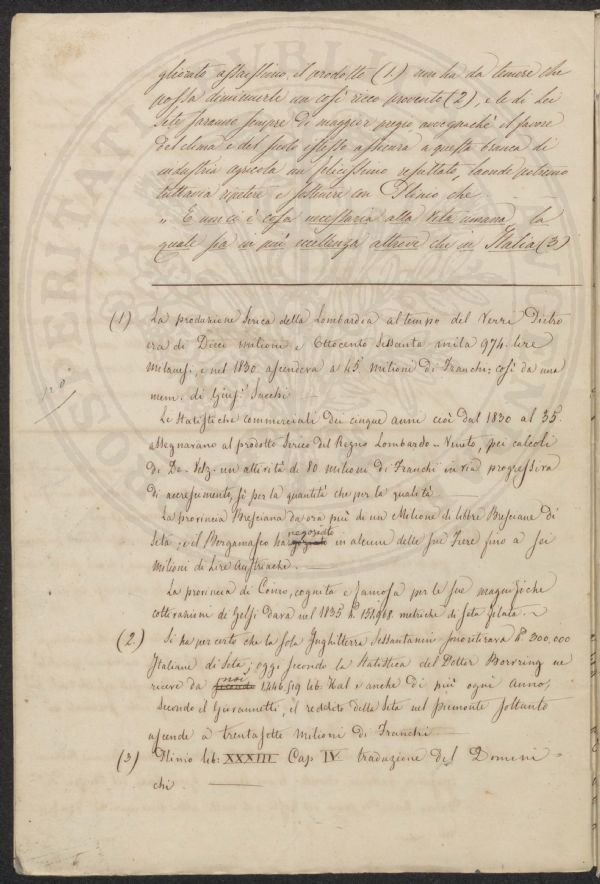 gliorato assaissimo il prodotto (1) non ha da temere che
possa diminuirle un così ricco provento (2), e le di lei
sete saranno sempre di maggior pregio avvegnachè il favore
del clima e del suolo istesso assicura a questa branca di
industria agricola un felicissimo resultato, laonde potremo
tuttavia ripetere e sostenere con Plinio che
„ E non ci è cosa necessaria alla vita umana la
quale sia in più eccellenza altrove che in Italia (3)
(1) La produzione serica della Lombardia al tempo del Verri Pietro
era di Dieci milioni e Ottocento Sessanta mila 974. lire
Milanesi, e nel 1830 ascendeva a 45 milioni di Franchi: così da una
mem. di Gius.e Sacchi —
Le statistiche commerciali dei cinque anni cioè dal 1830 al 35.
assegnavano al prodotto serico del Regno Lombardo-Veneto, pei calcoli
di De-Selz. un attività di 80 milioni di Franchi in via progressiva
di accrescimento, sì per la quantità che per la qualità —
La provincia Bresciana da ora più di un Milione di libbre Bresciane di
seta; e il Bergamasco ha negoziato in alcune delle sue Fiere fino a sei
Milioni di Lire Austriache. —
La provincia di Como, cognita e famosa per le sue magnifiche
coltivazioni di Gelsi dava nel 1835 151,968. metriche di seta filata. ~
(2.) Si ha per certo che la sola Inghilterra sessantanni fa ritirava 300,000
Italiane di Seta; oggi secondo la Statistica del Dottor Bowring ne
riceve da noi 1,446,519 lib. Ital. e anche di più ogni anno;
Secondo il Giovannetti, il reddito della Seta nel piemonte soltanto
ascende a trentasette milioni di Franchi —
(3) Plinio lib: XXXIII Cap IV traduzione del Domeni=
chi. —